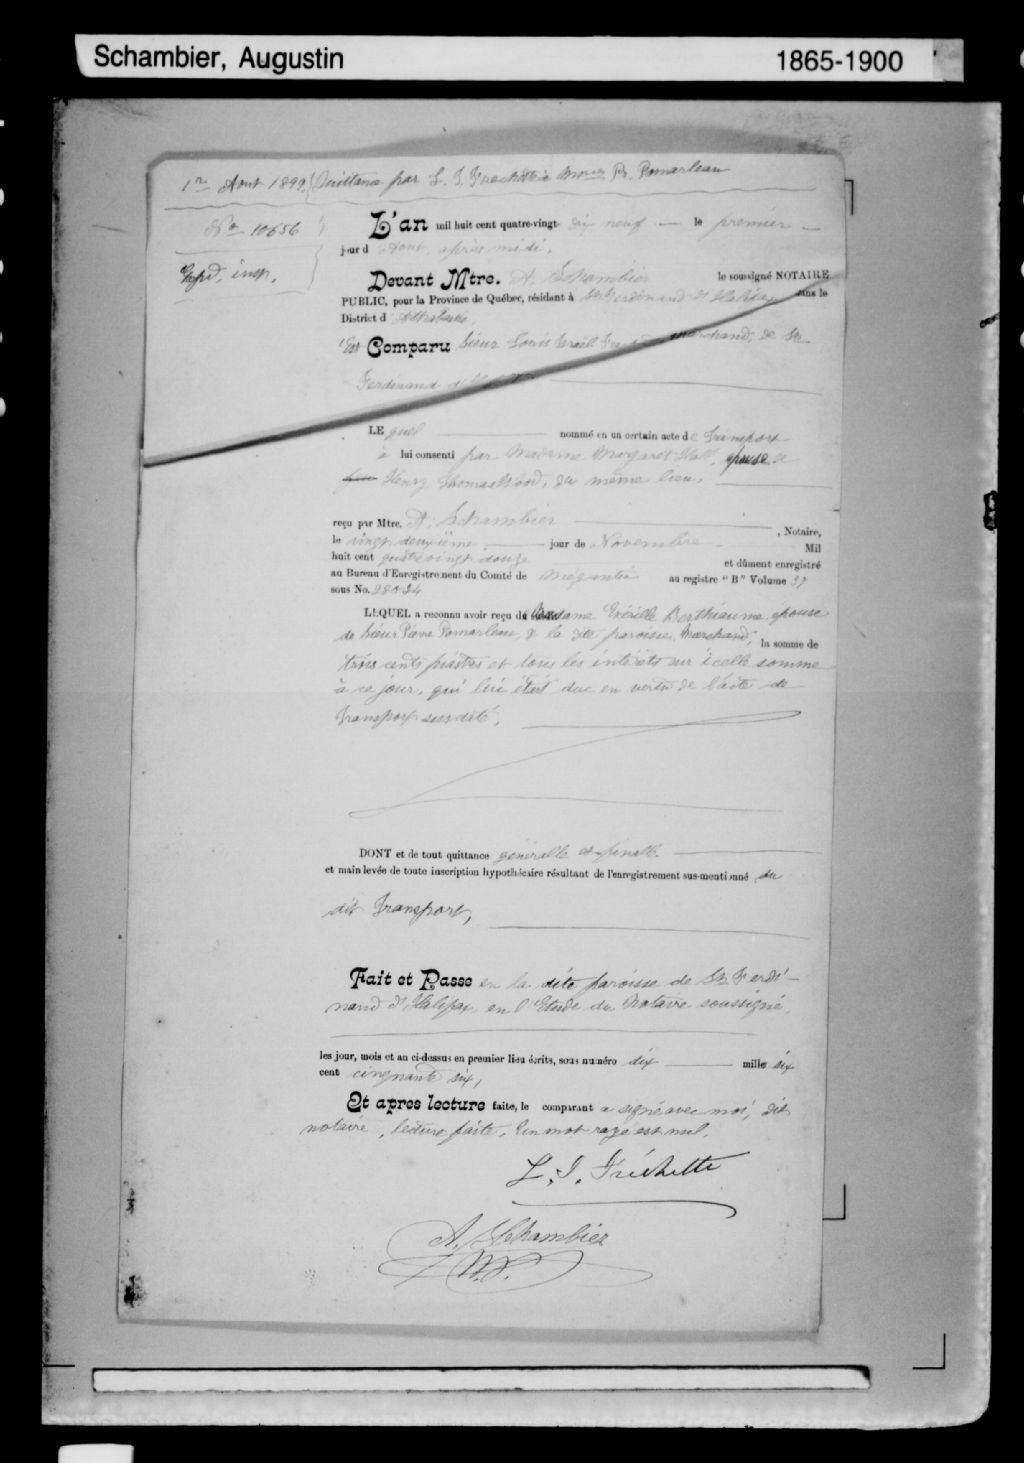 Schambier, Augustin 1865-1900
1er Aout 1899. Quittance par L. I. Frechette à P. Pomarleau
No 10656
L'an mil huit cent quatre-vingt- dix neuf — le premier —
jour d'Aout, après midi,
Devant Mtre. A. Schambier le soussigné NOTAIRE
PUBLIC, pour la Province de Québec, résidant à St Ferdinand d'Halifax dans le
District d'Arthabaska
Est Comparu Sieur Louis Israël marchand, de St
Ferdinand
LE quel nommé en un certain acte de Transport
à lui consenti par Madame Margaret Hall, épouse de
Henry Thomas Wood, du même lieu,
reçu par Mtre. A. Schambier , Notaire,
le vingt deuxième jour de Novembre Mil
huit cent quatre vingt douze et dûment enregistré
au Bureau d'Enregistrement du Comté de Mégantic au registre "B" Volume 37
sous No.
LEQUEL a reconnu avoir reçu de Madame Berthiaume, épouse
de Sieur Pomarleau, de la dite paroisse, Marchand, la somme de
trois cents piastres et tous les intérêts sur icelle somme
à ce jour, qui lui était due en vertu de l'acte de
Transport susdaté,
DONT et de tout quittance générale et finalle
et main levée de toute inscription hypothécaire résultant de l'enregistrement sus-mentionné du
dit Transport,
Fait et Passe en la dite paroisse de St Ferdi-
nand d'Halifax, en l'Etude du Notaire soussigné,
les jour, mois et an ci-dessus en premier lieu écrits, sous numéro dix mille six
cent cinquante six,
Et apres lecture faite, le comparant a signé avec moi, dit
notaire, lecture faite, Un mot rayé est nul.
L. I. Fréchette
A. Schambier
N.P.